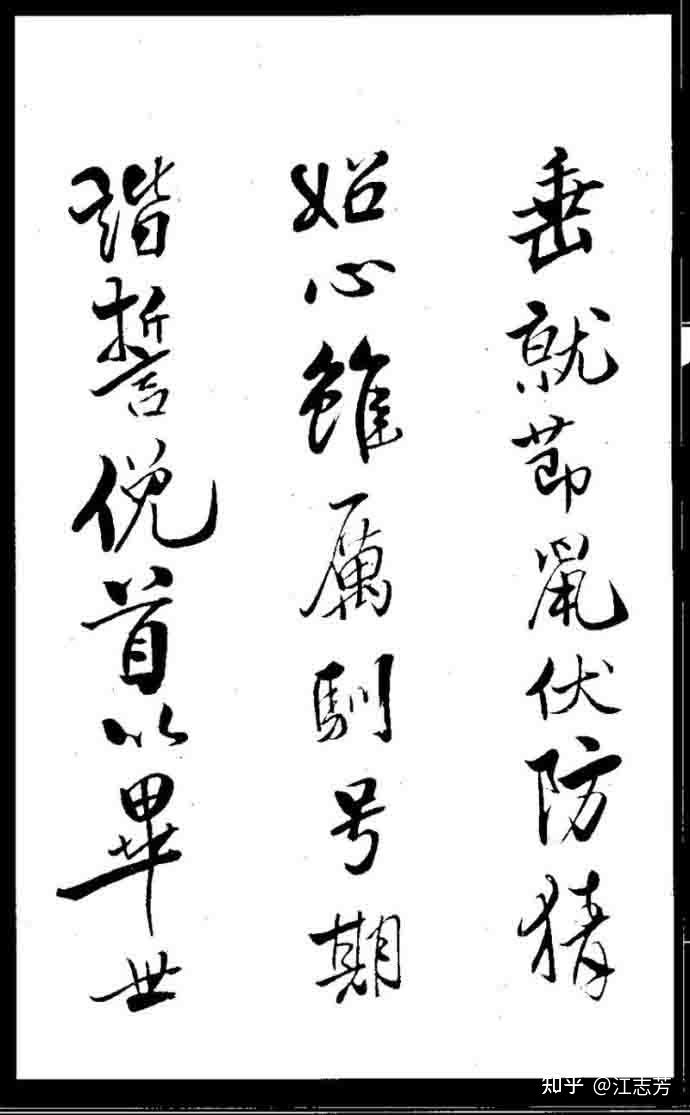 垂就莭鼠伏防猜
妬心雖厲馴号期
諧誓俛首以畢世
知乎 @江志芳